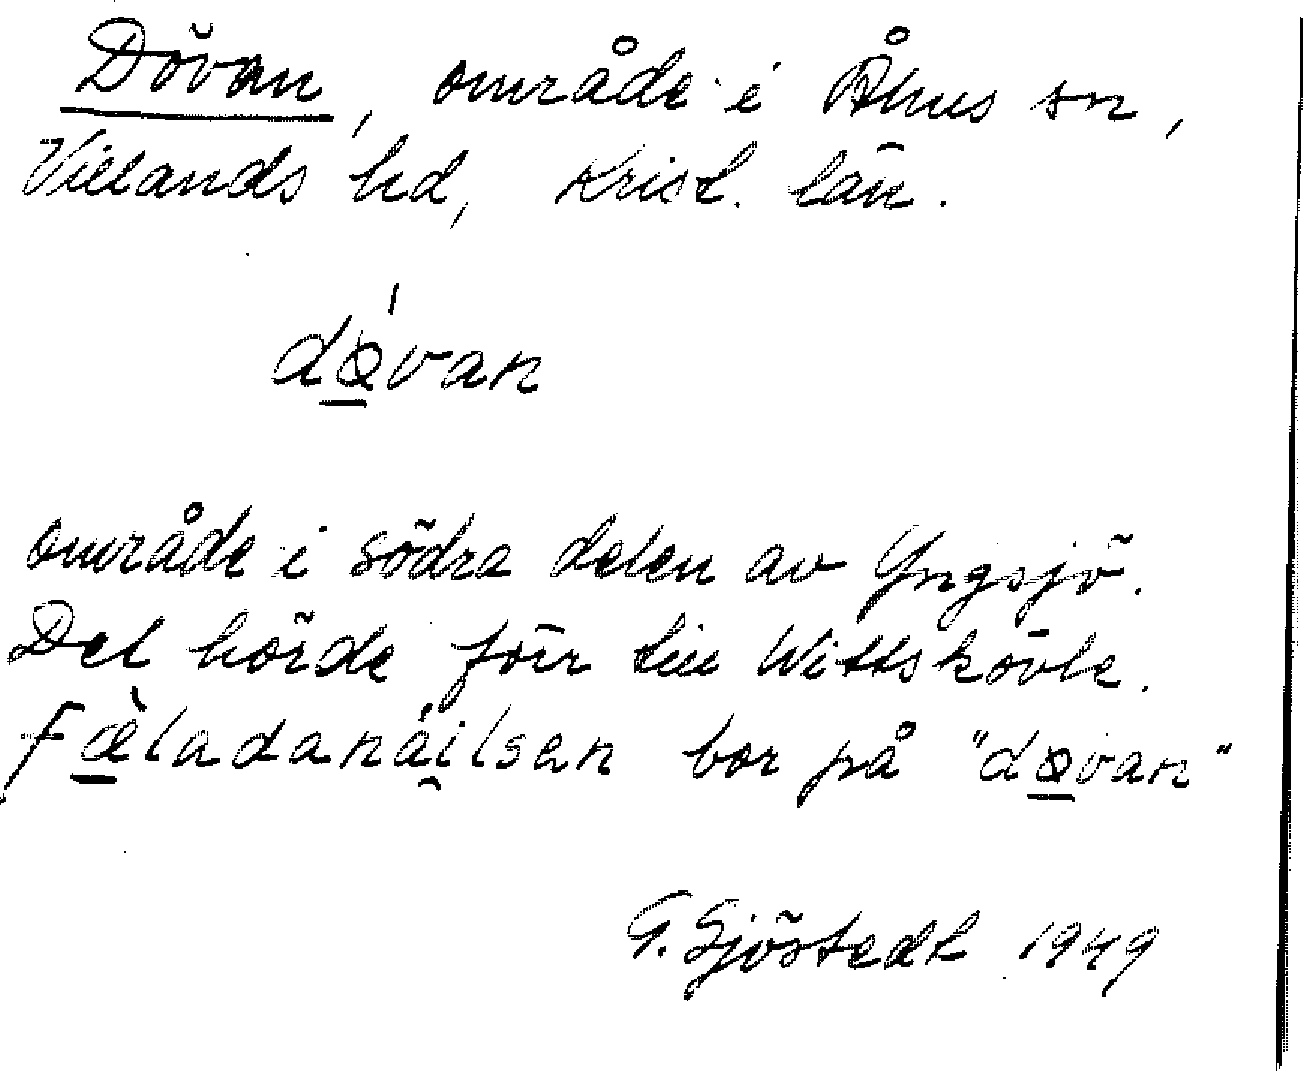 Dövan, område i Åhus sn,
Villands hd, Krist. län.
dǿ̱van
område i södra delen av Yngsjö.
Det hörde förr till Wittskövle.
Fæ̱̀ladanái̯lsen bor på "dø̱van"
G. Sjöstedt 1949